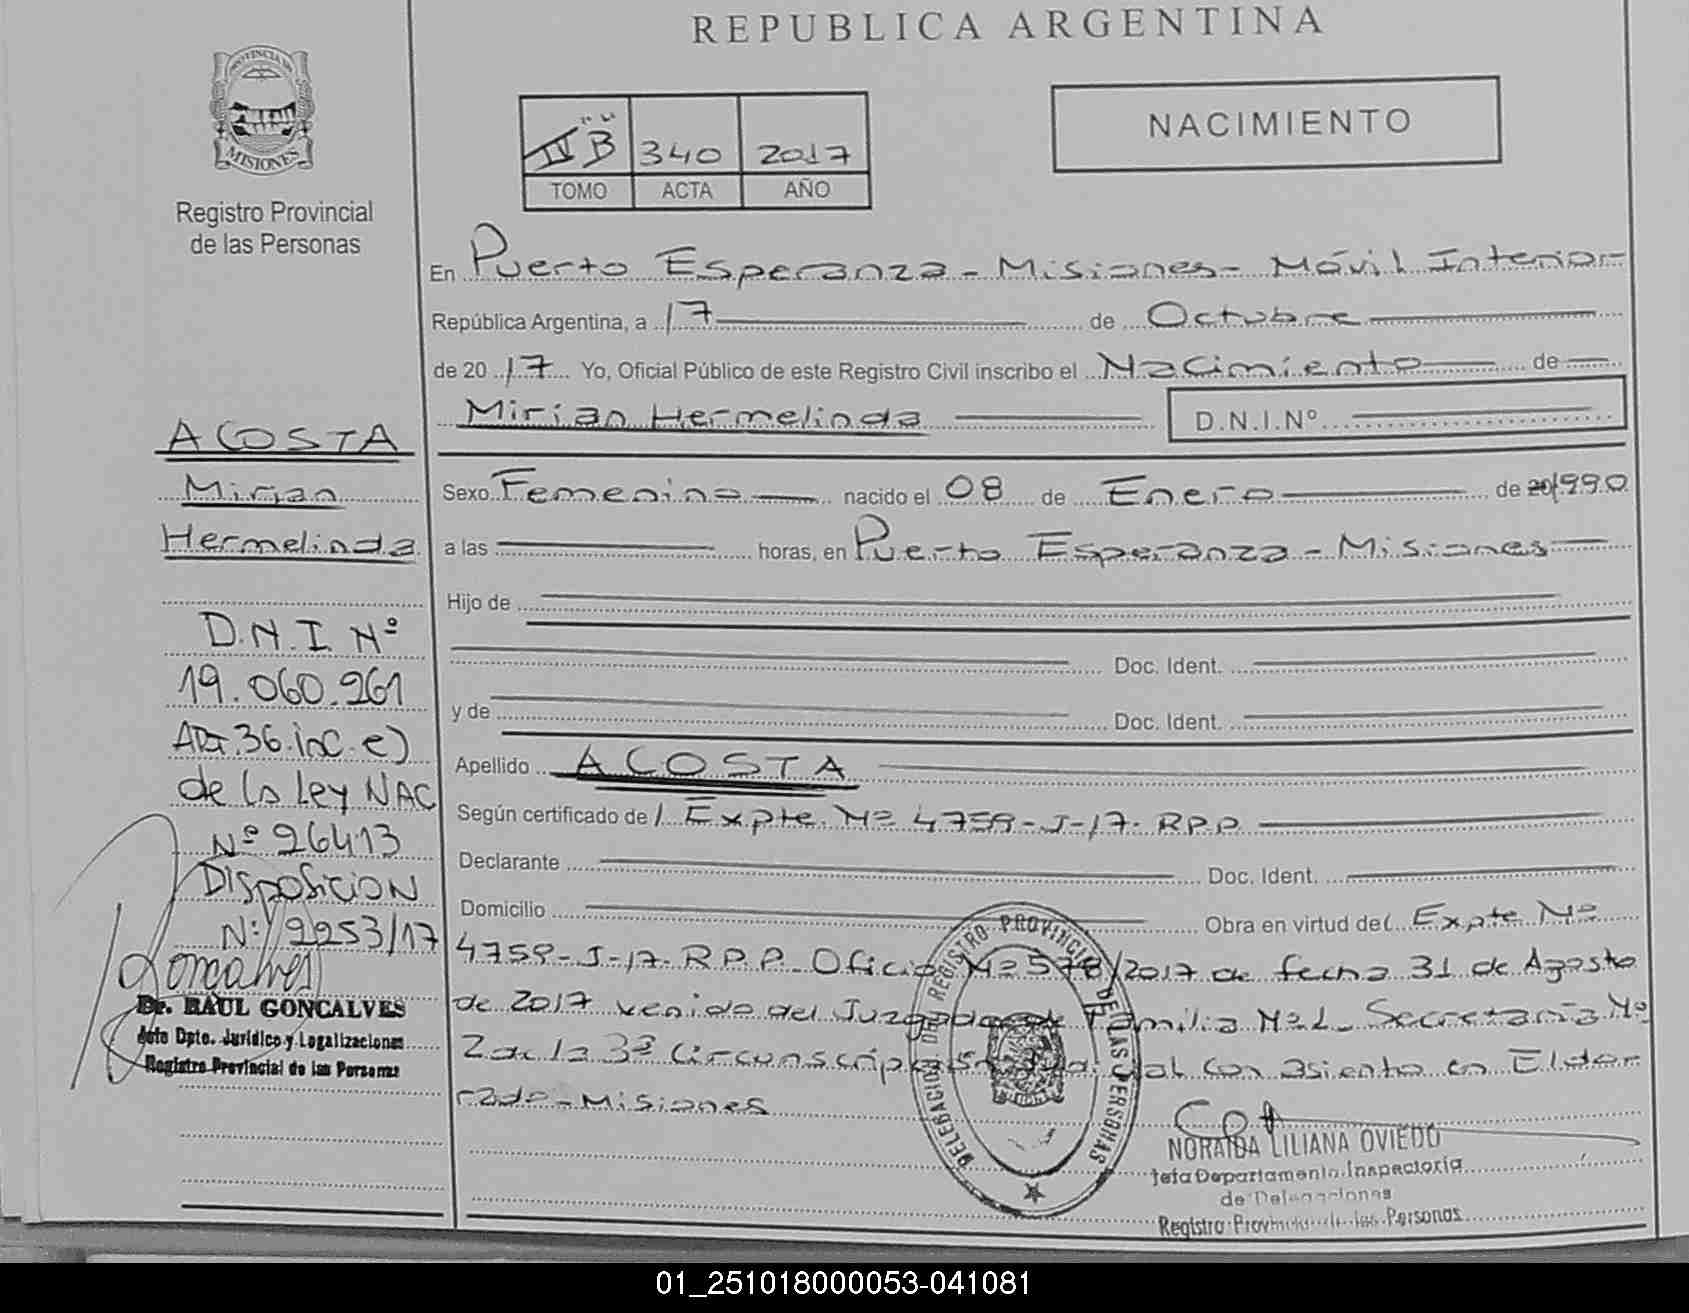 REPUBLICA ARGENTINA
PROVINCIA DE
MISIONES
Registro Provincial
de las Personas
NACIMIENTO
"B" 340 2017
TOMO ACTA AÑO
En Puerto Esperanza - Misiones - Móvil Interior
República Argentina, a 17 de Octubre
de 2017 Yo, Oficial Público de este Registro Civil inscribo el Nacimiento de
Mirian Hermelinda D.N.I.Nº
Sexo Femenino nacido el 08 de Enero de 20 1990
a las horas, en Puerto Esperanza - Misiones
Hijo de
Doc. Ident.
y de Doc. Ident.
Apellido ACOSTA
Según certificado de l Expte. Nº 4759-J-17- R.P.P
Declarante Doc. Ident.
Domicilio Obra en virtud del Expte Nº
4759-J-17-R.P.P. Oficio Nº 578/2017 de fecha 31 de Agosto
de 2017 venido del Juzgado de Familia Nº1- Secretaria Nº
2 de la 3ª Circunscripción Judicial con asiento en Eldo
rado - Misiones
ACOSTA
Mirian
Hermelinda
D.N.I. Nº
19.060.261
Art.36.inc.e)
de la Ley NAC
Nº 26413
DISPOSICION
N:/2253/17
Dr. RAUL GONCALVES
Jefe Dpto. Jurídico y Legalizaciones
Registro Provincial de las Personas
DELEGACION DEL REGISTRO PROVINCIAL DE LAS PERSONAS
NORAIDA LILIANA OVIEDO
Jefa Departamento Inspectoría
de Delegaciones
Registro Provincial de las Personas
01_251018000053-041081